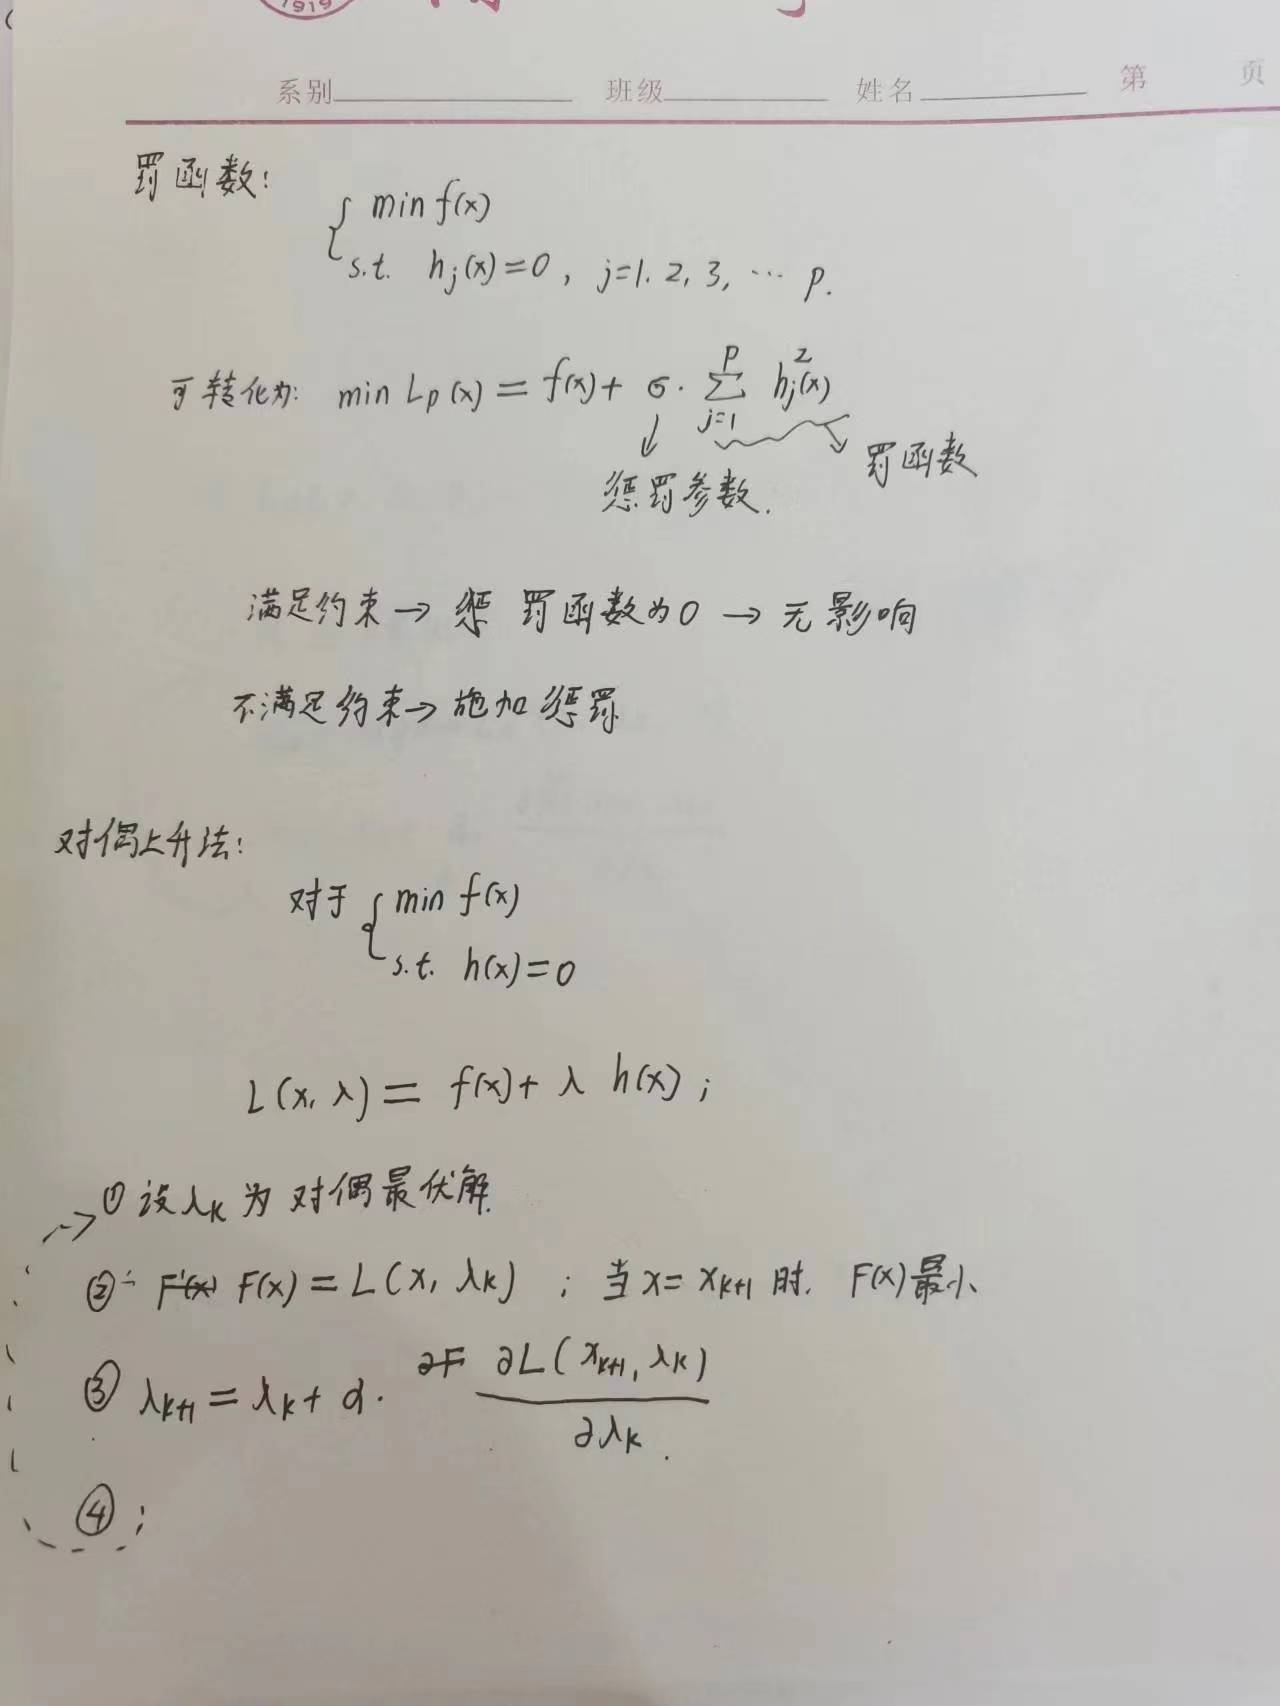 1919
系别 班级 姓名 第 页
罚函数:
min f(x)
s.t. h_j(x)=0, j=1.2,3,… p.
可转化为: min L_p(x) = f(x)+ σ· ∑_{j=1}^{p} h_j^2(x)
惩罚参数. 罚函数
满足约束→惩 罚函数为0→无影响
不满足约束→施加惩罚
对偶上升法:
对于 { min f(x)
s.t. h(x)=0
L(x, λ) = f(x)+ λ h(x) ;
① 设λ_k为 对偶最优解.
② F'(x) F(x) = L(x, λ_k) ; 当x= x_{k+1} 时. F(x)最小
③ λ_{k+1} = λ_k + α· ∂F ∂L(x_{k+1}, λ_k) / ∂λ_k .
④ ;